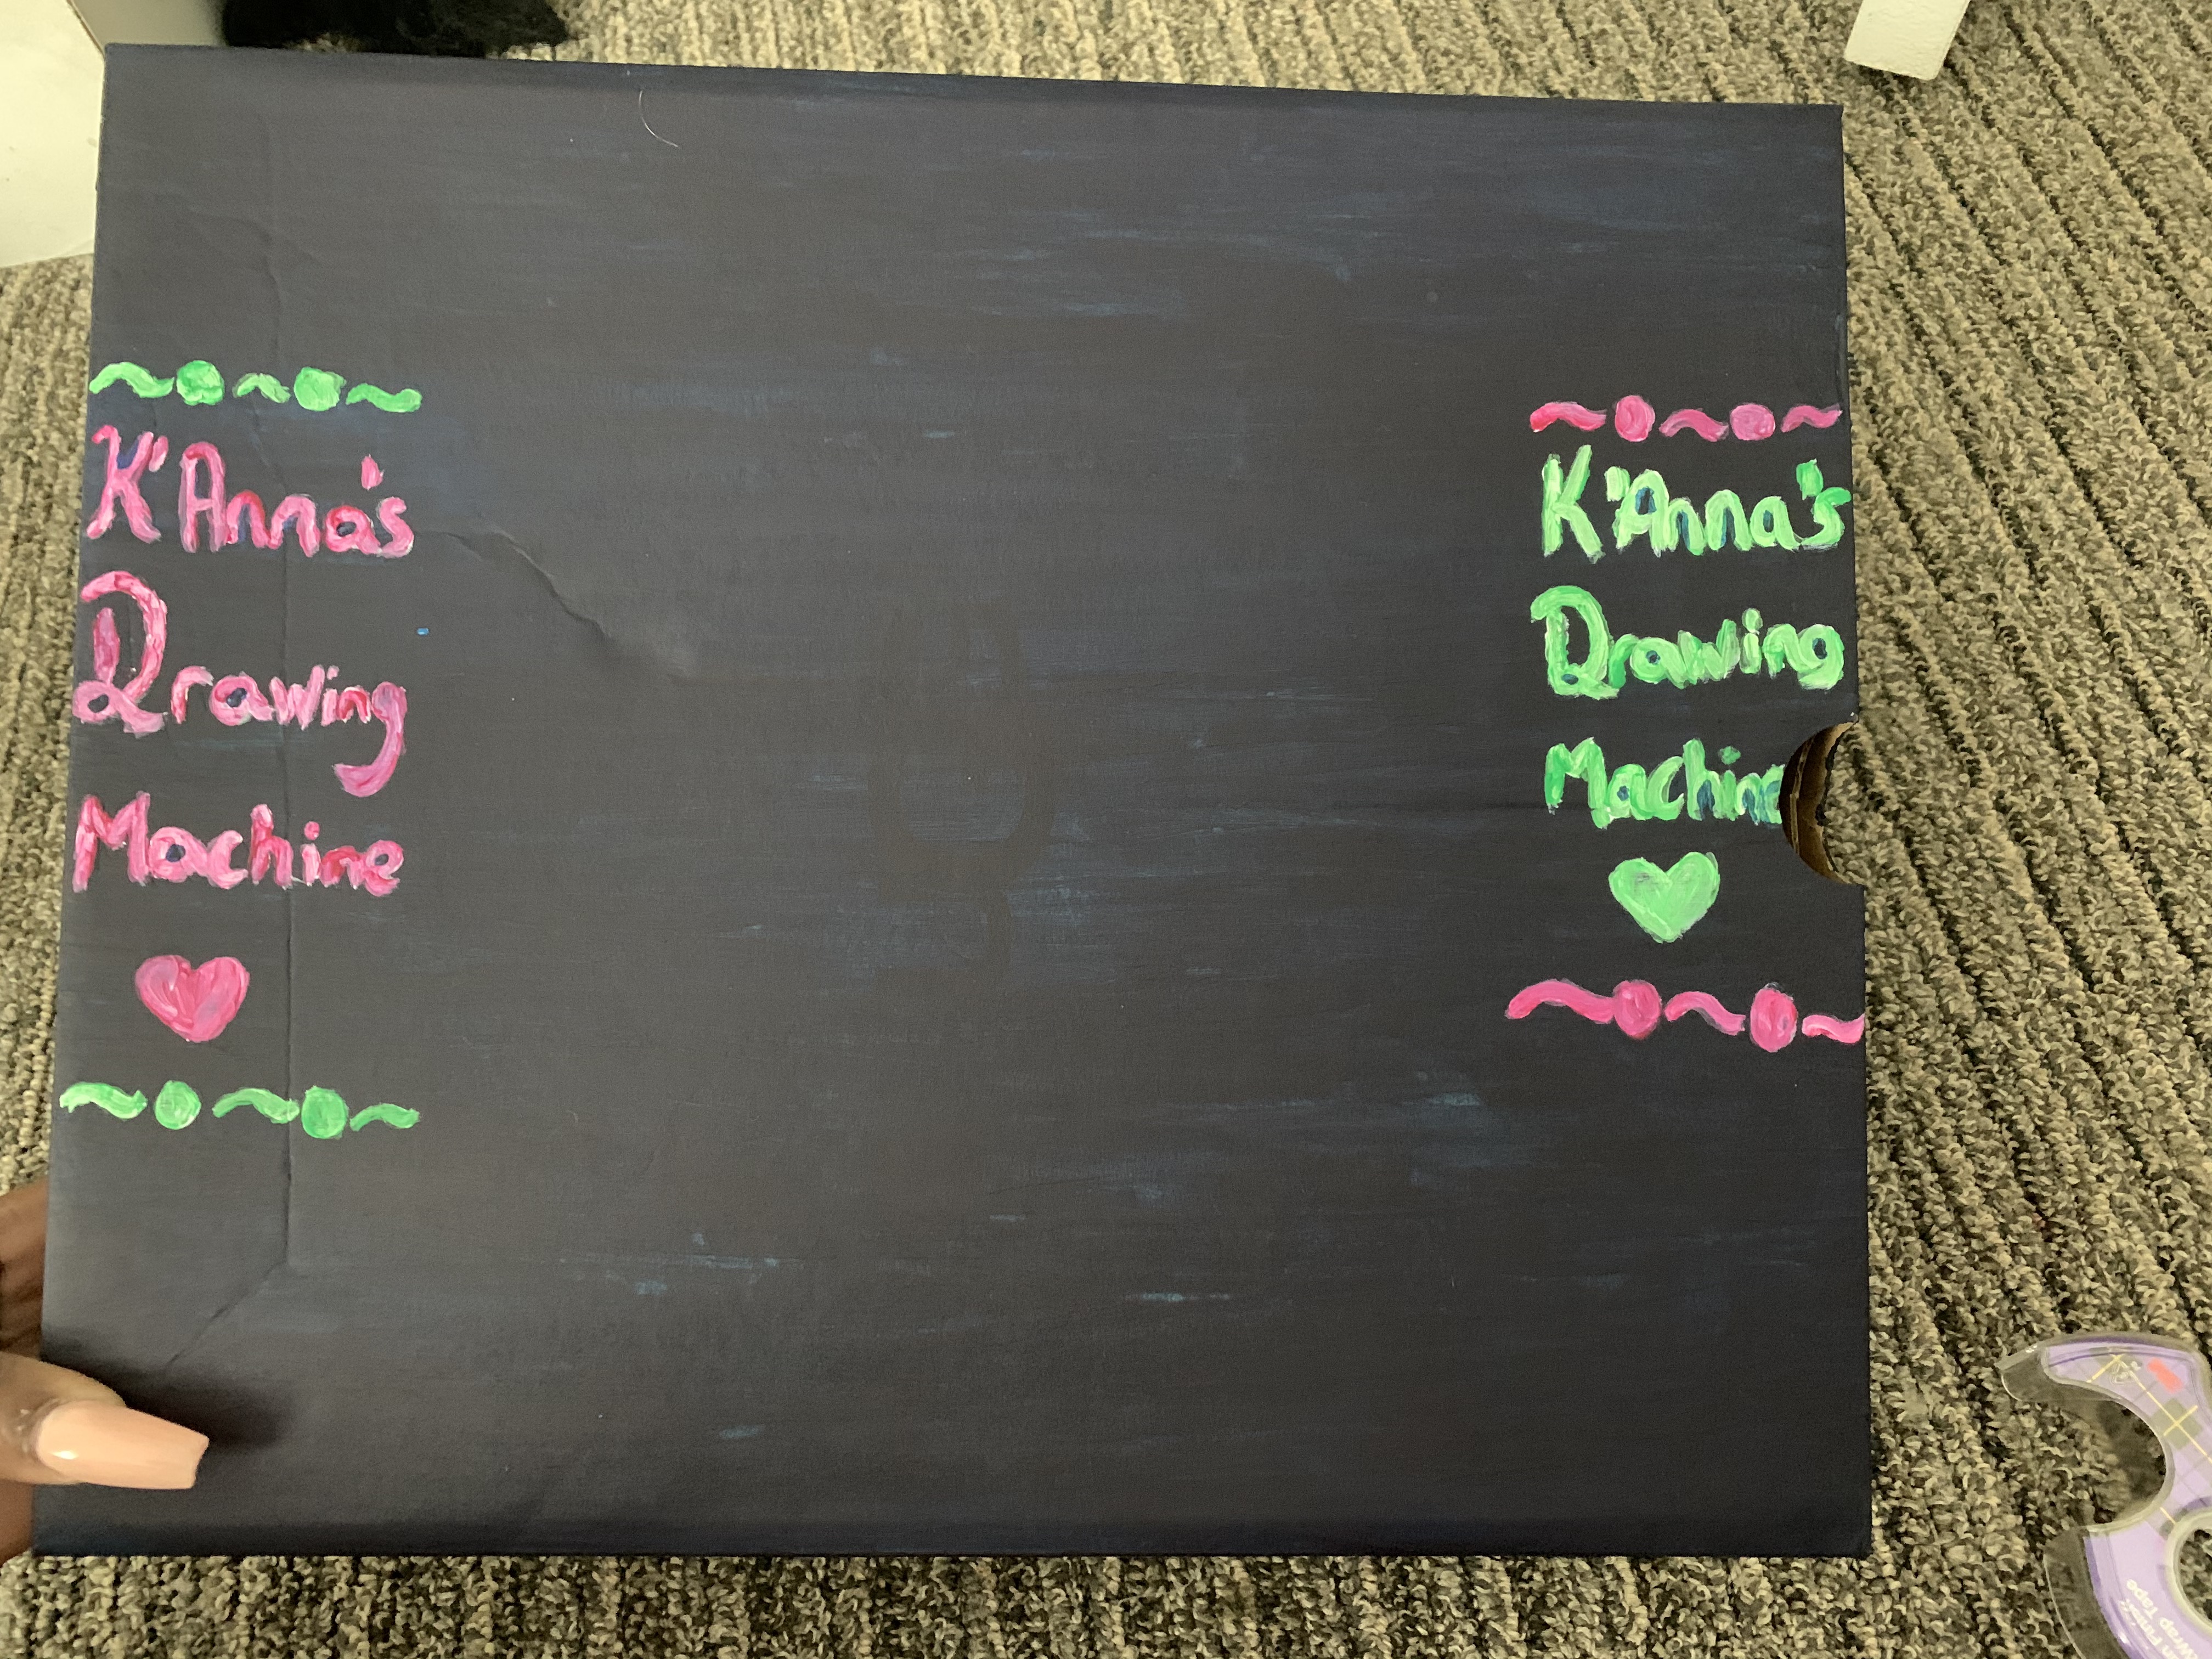 K'Anna's
Drawing
Machine
K'Anna's
Drawing
Machine
Finish
Wrap Tape